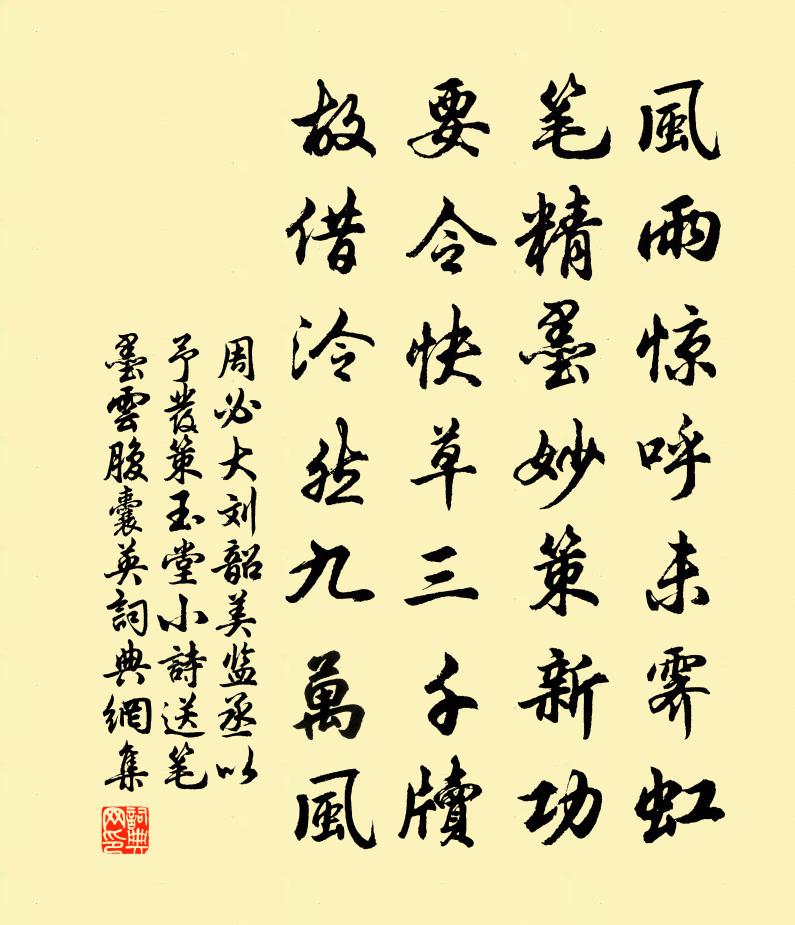 風雨惊呼未霽虹
笔精墨妙策新功
要令快草三千牘
故借泠然九萬風
周必大刘韶美监丞以
予發策玉堂小詩送笔
墨雲腴囊英詞典網集
詞典
网印